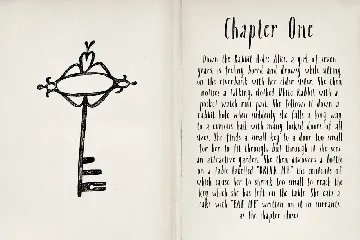 Chapter One
Down the Rabbit Hole: Alice, a girl of seven
years, is feeling bored and drowsy while sitting
on the riverbank with her elder sister. She then
notices a talking, clothed White Rabbit with a
pocket watch run past. She follows it down a
rabbit hole when suddenly she falls a long way
to a curious hall with many locked doors of all
sizes. She finds a small key to a door too small
for her to fit through, but through it she sees
an attractive garden. She then discovers a bottle
on a table labelled "DRINK ME," the contents of
which cause her to shrink too small to reach the
key which she has left on the table. She eats a
cake with "EAT ME" written on it in currants
as the chapter closes.